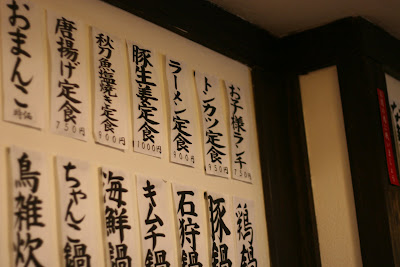 お子様ランチ
750円
トンカツ定食
900円
ラーメン定食
900円
豚生姜定食
1000円
秋刀魚塩焼き定食
900円
唐揚げ定食
750円
おまんこ
時価
鶏鍋
豚鍋
石狩鍋
キムチ鍋
海鮮鍋
ちゃんこ鍋
鳥雑炊